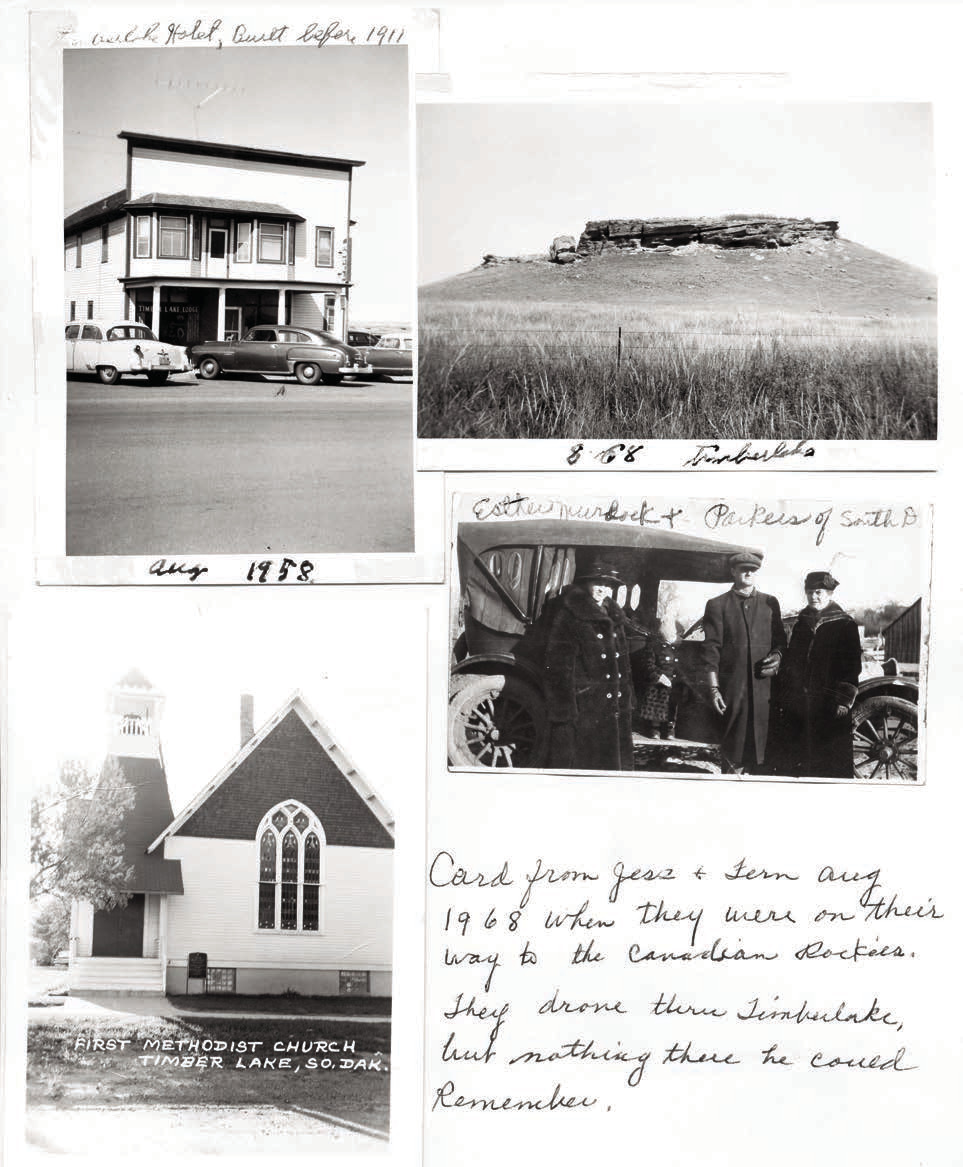 Hotel, Built before 1911
TIMBER LAKE LODGE
Aug 1958
8-68 Timberlake
Esther Murdock & Parkers of South D
FIRST METHODIST CHURCH
TIMBER LAKE, SO. DAK.
Card from Jess & Fern Aug
1968 when they were on their
way to the Canadian Rockies.
They drove thru Timberlake,
but nothing there he could
Remember.